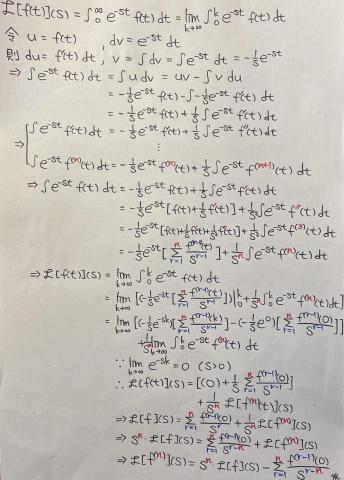 ℒ[f(t)](s) = ∫₀^∞ e^{-st} f(t) dt = lim_{k→∞} ∫₀^k e^{-st} f(t) dt
令 u = f(t) , dv = e^{-st} dt
則 du = f'(t) dt , v = ∫dv = ∫e^{-st} dt = -1/s e^{-st}
⇒ ∫e^{-st} f(t) dt = ∫u dv = uv - ∫v du
= -1/s e^{-st} f(t) - ∫ -1/s e^{-st} f'(t) dt
= -1/s e^{-st} f(t) + 1/s ∫e^{-st} f'(t) dt
⇒ ∫e^{-st} f'(t) dt = -1/s e^{-st} f'(t) + 1/s ∫e^{-st} f''(t) dt
⋮
∫e^{-st} f^{(n)}(t) dt = -1/s e^{-st} f^{(n)}(t) + 1/s ∫e^{-st} f^{(n+1)}(t) dt
⇒ ∫e^{-st} f(t) dt = -1/s e^{-st} f(t) + 1/s ∫e^{-st} f'(t) dt
= -1/s e^{-st} [f(t) + 1/s f'(t)] + 1/s² ∫e^{-st} f''(t) dt
= -1/s e^{-st} [f(t) + 1/s f'(t) + 1/s² f''(t)] + 1/s³ ∫e^{-st} f^{(3)}(t) dt
= -1/s e^{-st} [Σ_{r=1}^{n} f^{(r-1)}(t)/s^{r-1}] + 1/s^n ∫e^{-st} f^{(n)}(t) dt
⇒ ℒ[f(t)](s) = lim_{k→∞} ∫₀^k e^{-st} f(t) dt
= lim_{k→∞} [(-1/s e^{-st} [Σ_{r=1}^{n} f^{(r-1)}(t)/s^{r-1}])|₀^k + 1/s^n ∫₀^k e^{-st} f^{(n)}(t) dt]
= lim_{k→∞} [(-1/s e^{-sk}) [Σ_{r=1}^{n} f^{(r-1)}(k)/s^{r-1}] - (-1/s e⁰) [Σ_{r=1}^{n} f^{(r-1)}(0)/s^{r-1}]]
+ 1/s^n lim_{k→∞} ∫₀^k e^{-st} f^{(n)}(t) dt
∵ lim_{k→∞} e^{-sk} = 0 (s>0)
∴ ℒ[f(t)](s) = [(0) + 1/s · Σ_{r=1}^{n} f^{(r-1)}(0)/s^{r-1}]
+ 1/s^n ℒ[f^{(n)}(t)](s)
⇒ ℒ[f](s) = Σ_{r=1}^{n} f^{(r-1)}(0)/s^r + 1/s^n ℒ[f^{(n)}](s)
⇒ s^n · ℒ[f](s) = Σ_{r=1}^{n} f^{(r-1)}(0)/s^{r-n} + ℒ[f^{(n)}](s)
⇒ ℒ[f^{(n)}](s) = s^n · ℒ[f](s) - Σ_{r=1}^{n} f^{(r-1)}(0)/s^{r-n}